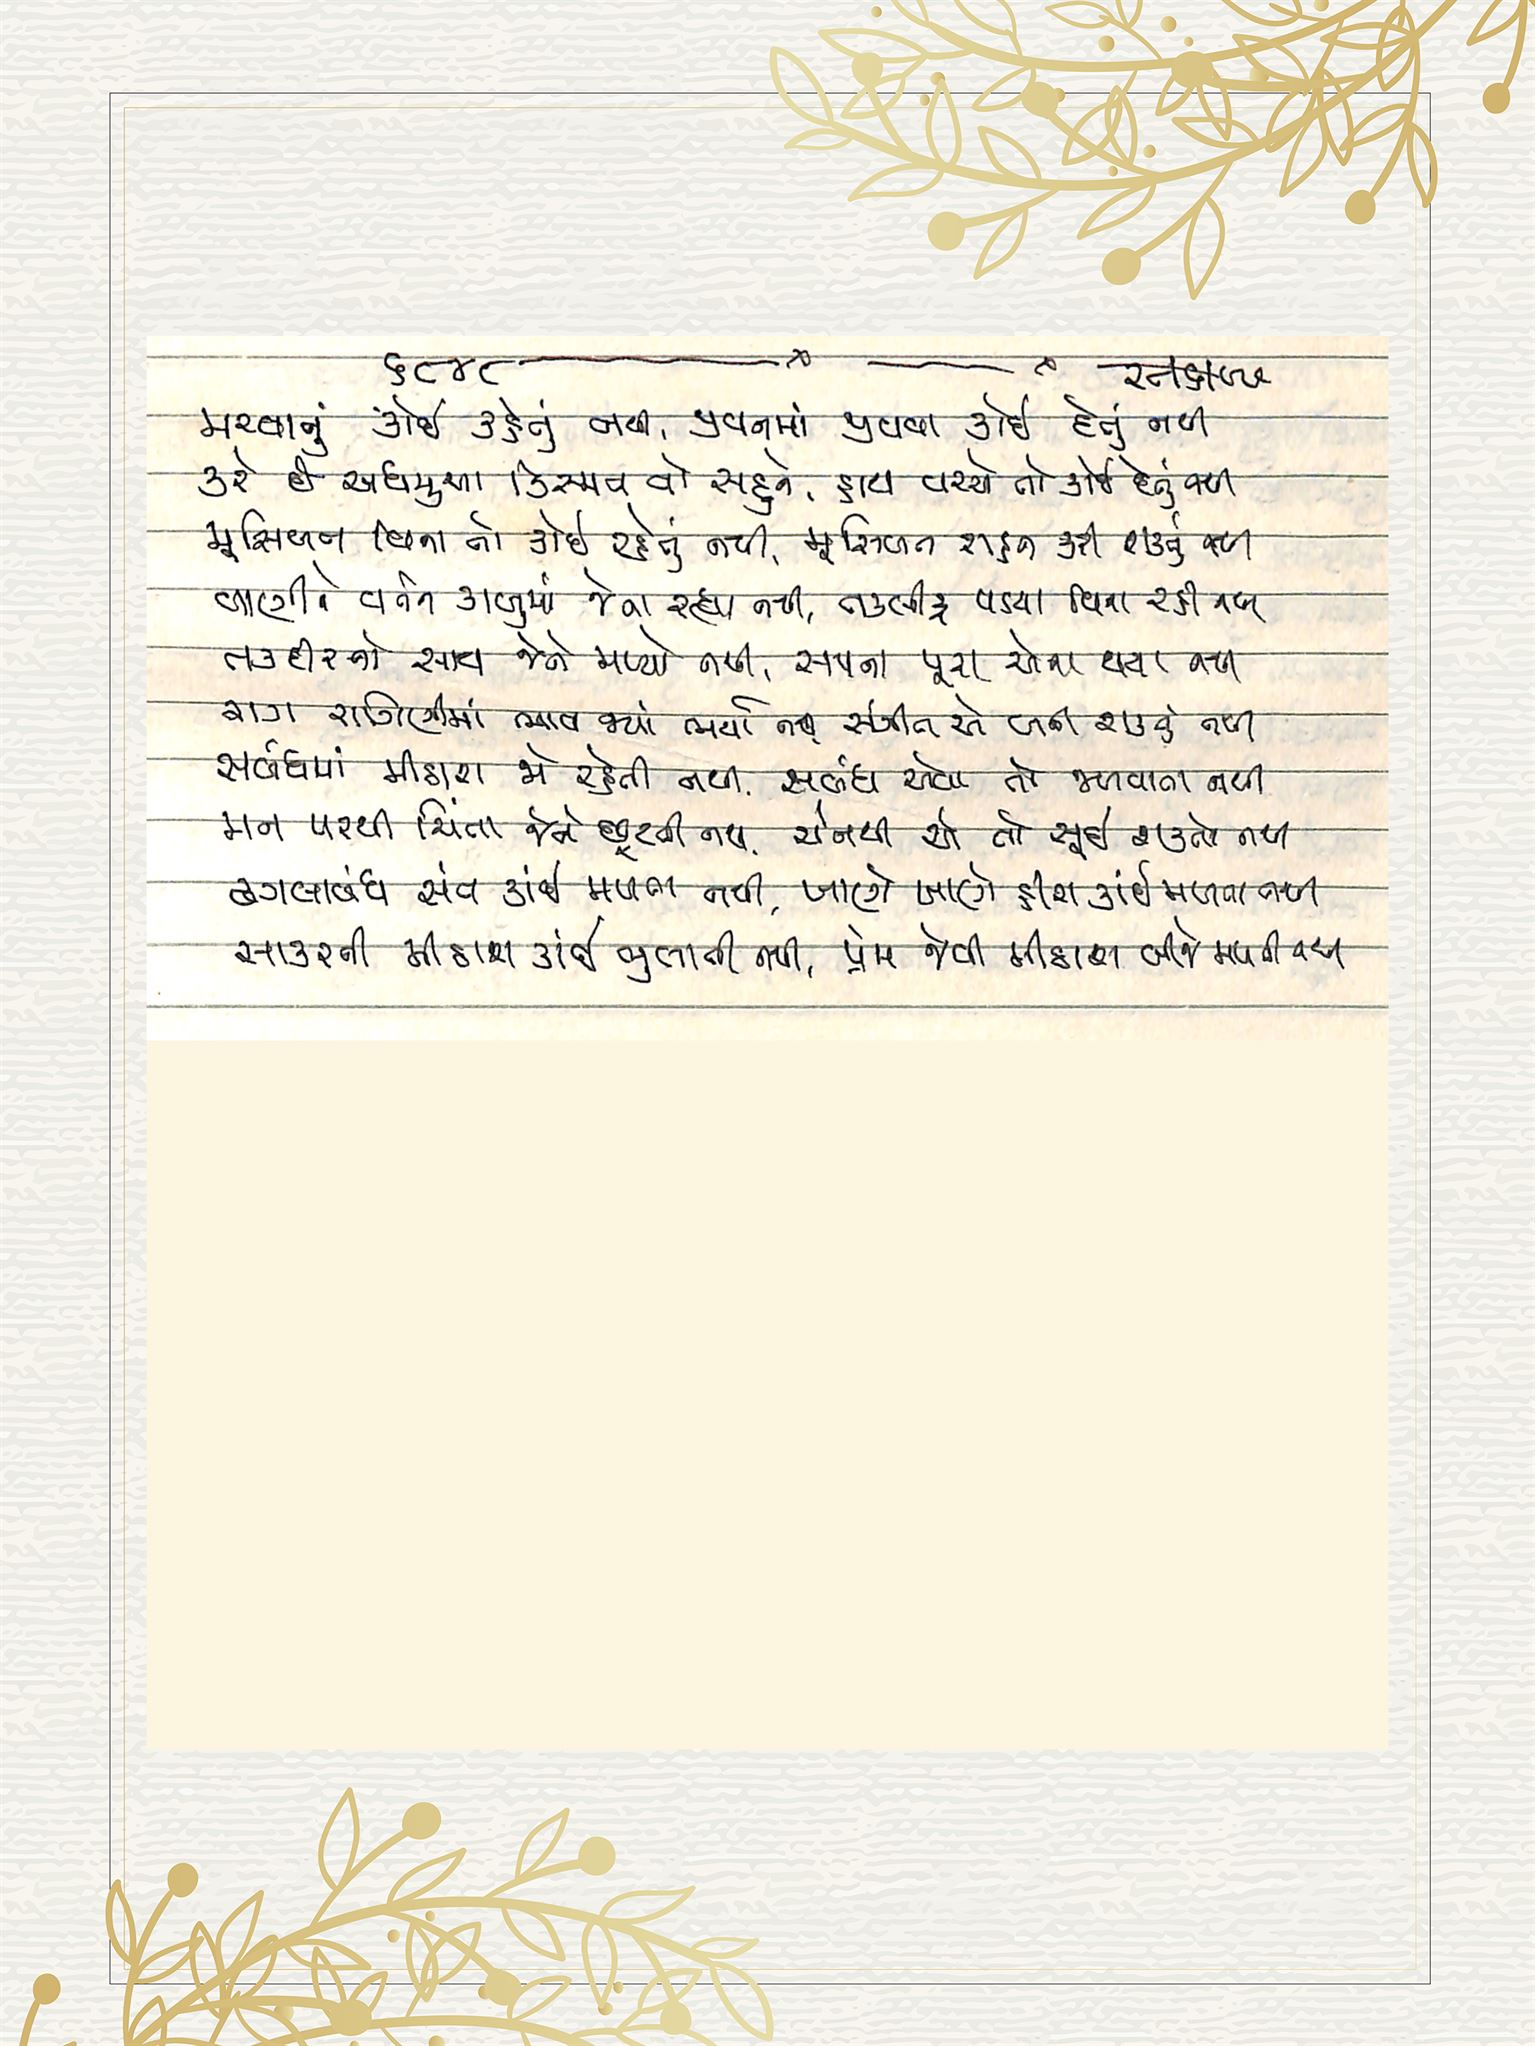 ૬૮૪૮
મરવાનું કોઈ કહેતું નથી, જીવનમાં જીવવા કોઈ દેતું નથી
કરે છે અધમુઆ કિસ્મત તો સહુને, હાથ વચ્ચે તો કોઈ દેતું નથી
મૂસીબત વિના તો કોઈ રહેતું નથી, મૂસીબત સહન કરી શકતું નથી
જાણીને વર્તન કાબુમાં જેના રહ્યા નથી, તકલીફ પડયા વિના રહી નથી
તકદીરનો સાથ જેને મળ્યો નથી, સપના પૂરા એના થયા નથી
રાગ રાગિણીમાં ભાવ જ્યાં ભર્યા નથી સંગીત એ બની શક્યું નથી
સબંધમાં મીઠાશ જો રહેતી નથી, સબંધ એવા તો જળવાતા નથી
મન પરથી ચિંતા જેને છૂટતી નથી, ચેનથી એ તો સૂઈ શકતો નથી
ઢગલાબંધ સંત કાંઈ મળતા નથી, જાણે જાણે હીરા કાંઈ મળતા નથી
સાકરની મીઠાશ કાંઈ ભુલાતી નથી, પ્રેમ જેવી મીઠાશ બીજે મળતી નથી